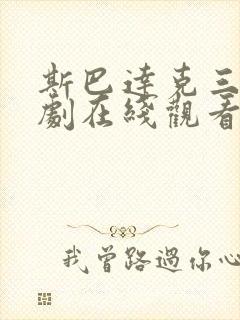 斯巴達克三
劇在綫觀看
我曾路過你心